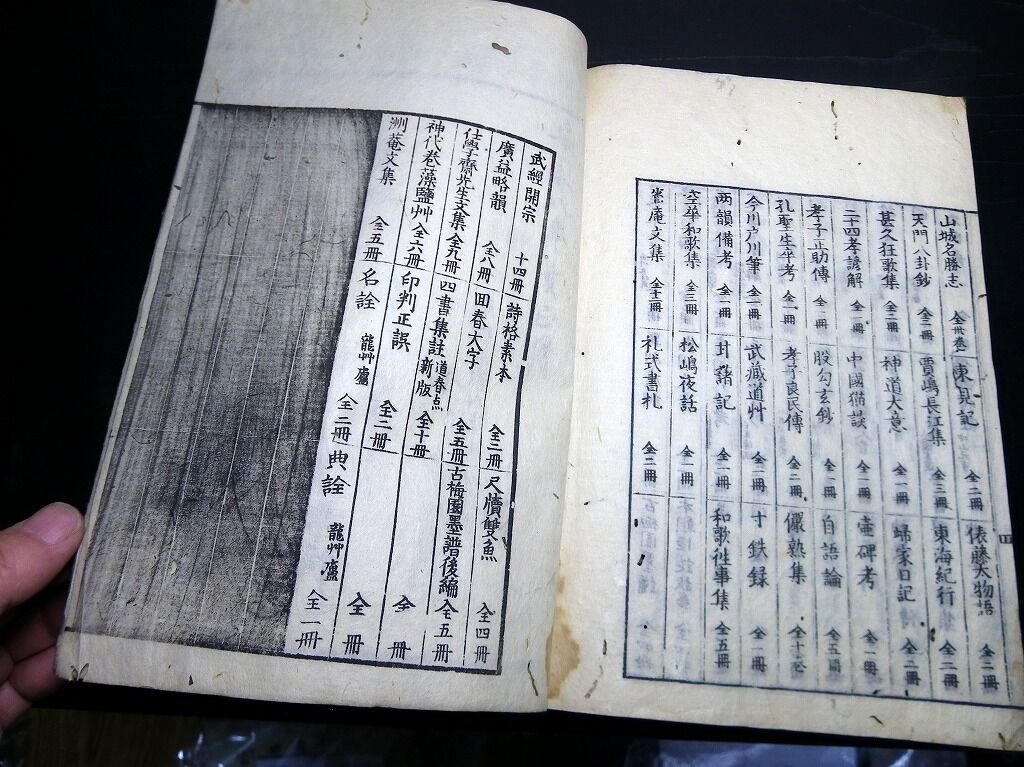 山城名勝志 全卅巻 東見記 全二冊 俵藤太物語 全二冊
天門八卦鈔 全二冊 賈嶋長江集 全三冊 東海紀行 全二冊
甚久狂歌集 全二冊 神道大意 全一冊 帰家日記 全二冊
二十四孝諺解 全一冊 中國猫談 全一冊 壷碑考 全一冊
孝子正助傳 全一冊 股勾玄鈔 全一冊 自語論 全五冊
孔聖生卒考 全一冊 孝子良民傳 全二冊 儼熟集 全十巻
今川戸川筆 全二冊 武藏道艸 全一冊 寸鉄録 全一冊
两韻備考 全一冊 全一冊 和歌徃事集 全五冊
空華和歌集 全三冊 松嶋夜話 全一冊
庵文集 礼式書札 全二冊
四
武經開宗 十四冊 詩格素本 全三冊 尺牘雙魚 全四冊
廣益略韻 全八冊 回春大字 全五冊 古梅園墨譜後編 全五冊
仕學齋先生文集 全九冊 四書集註 道春点 新版 全十冊 全 冊
神代巻藻鹽艸 全六冊 印判正誤 全二冊 全 冊
洌菴文集 全五冊 名詮 龍艸廬 全二冊 典詮 龍艸廬 全一冊